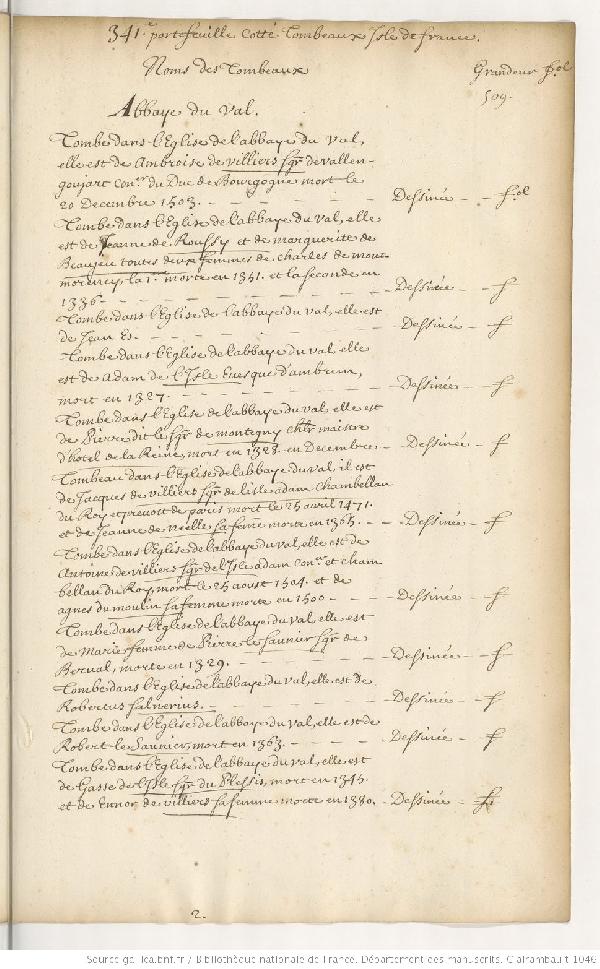 341.e portefeuille cotté Tombeaux Isle de france.
Noms des Tombeaux
Grandeur fol
509.
Abbaye du Val.
Tombe dans l'Eglise de l'abbaye du Val,
elle est de Ambroise de Villiers sgr de vallen-
goujart con.er du Duc de Bourgogne mort le
20 Decembre 1503. - - - - - Dessinée - - fol
Tombe dans l'Eglise de l'abbaye du Val, elle
est de Jeanne de Roussy et de marguerite de
Beaujeu toutes deux femmes de charles de mont
morency, la 1.re morte en 1341. et la seconde en
1336. - - - - - Dessinée - f
Tombe dans l'Eglise de l'abbaye du Val, elle est
de Jean Es. - - - - - Dessinée - f
Tombe dans l'Eglise de l'abbaye du val, elle
est de Adam de l'Isle Euesque d'ambrun,
mort en 1327. - - - - - Dessinée - f
Tombe dans l'Eglise de l'abbaye du val, elle est
de Pierre dit le sgr de montigny chlr maistre
d'hotel de la Reine, mors en 1328. en Decembre - Dessinée - f
Tombeau dans l'Eglise de l'abbaye du val, il est
de Jacques de villiers sgr de lisle adam Chambellan
du Roy et prevost de paris mort le 25 avril 1471.
et de Jeanne de nielle sa feme morte en 1363. - - Dessinée - f
Tombe dans l'Eglise de l'abbaye du val, elle est de
Antoine de villiers sgr de l'Isle adam con.er et cham
bellan du Roy, mort le 25 aoust 1504. et de
agnes du moulin sa femme morte en 1500 - - - Dessinée - f
Tombe dans l'Eglise de l'abbaye du val, elle est
de Marie femme de Pierre le Saunier sgr de
Berual, morte en 1329. - - - - - Dessinée - f
Tombe dans l'Eglise de l'abbaye du val, elle est de
Robertus salnerius. - - - - - Dessinée - f
Tombe dans l'Eglise de l'abbaye du Val, elle est de
Robert le Saunier, mort en 1363. - - - - - Dessinée - f
Tombe dans l'Eglise de l'abbaye du val, elle est
de Gasse de l'Isle sgr du Plessis, mort en 1345.
et de Ennor de villiers sa femme morte en 1380. - Dessinée - f
2.
Source gallica.bnf.fr / Bibliothèque nationale de France. Département des manuscrits. Clairambault 1046